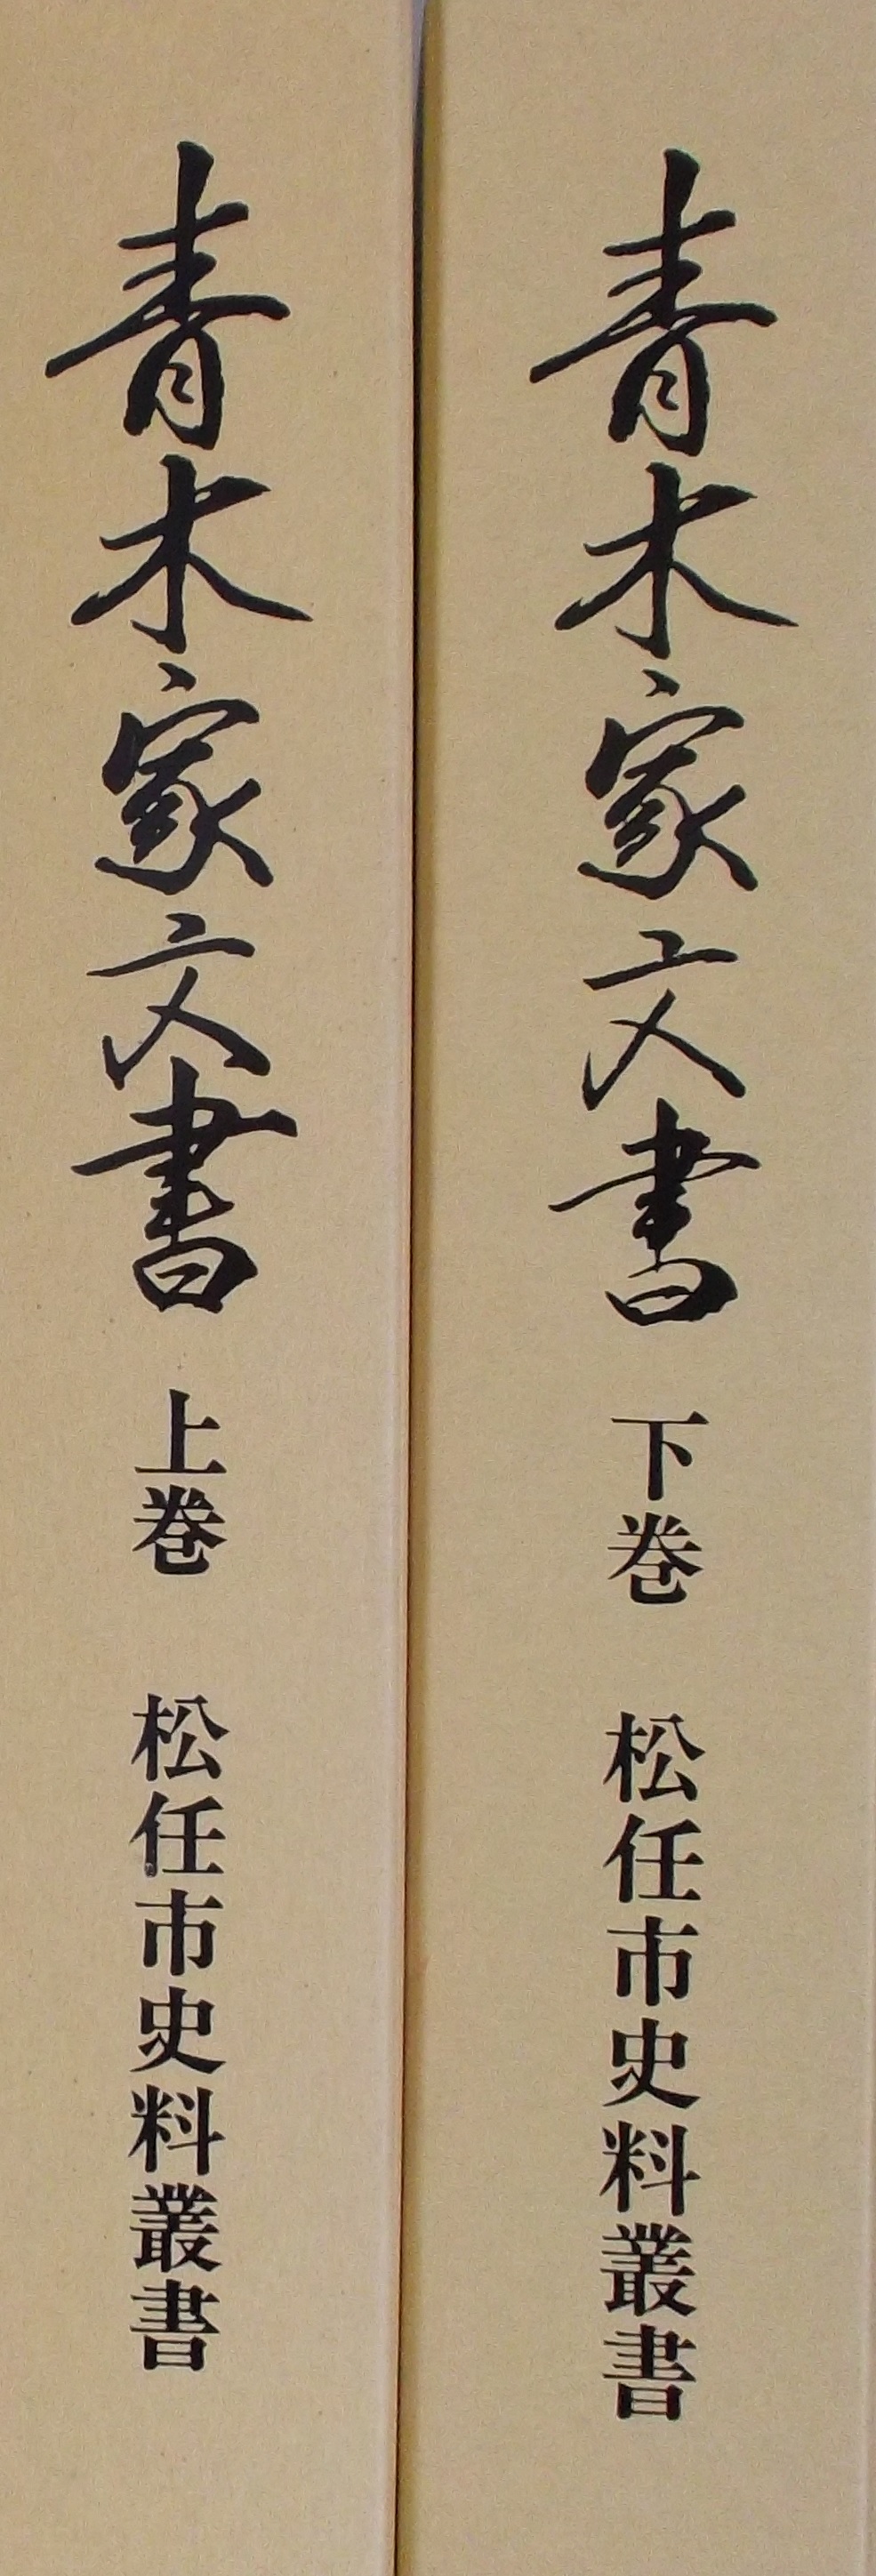 青木家文書 上巻 松任市史料叢書
青木家文書 下巻 松任市史料叢書